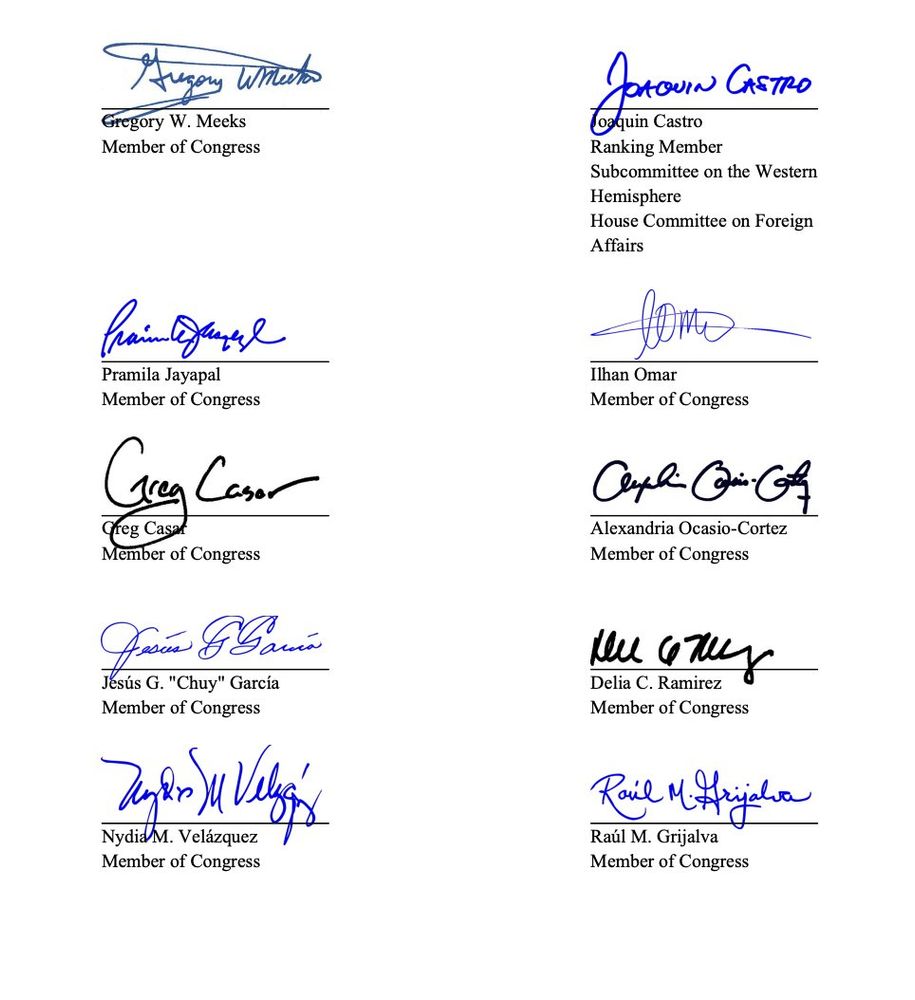 Gregory W Meeks
Gregory W. Meeks
Member of Congress
JOAQUIN CASTRO
Joaquin Castro
Ranking Member
Subcommittee on the Western
Hemisphere
House Committee on Foreign
Affairs
Pramila Jayapal
Member of Congress
Ilhan Omar
Member of Congress
Greg Casar
Greg Casar
Member of Congress
Alexandria Ocasio-Cortez
Member of Congress
Jesús G García
Jesús G. "Chuy" García
Member of Congress
Delia C. Ramirez
Member of Congress
Nydia M Velázquez
Nydia M. Velázquez
Member of Congress
Raúl M. Grijalva
Raúl M. Grijalva
Member of Congress